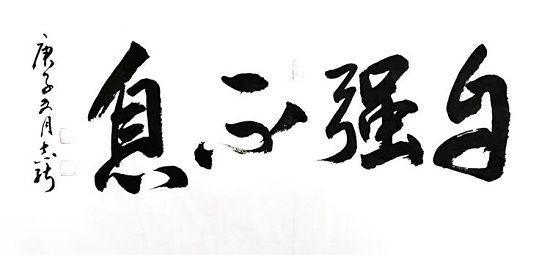 自强不息
庚子文月志强